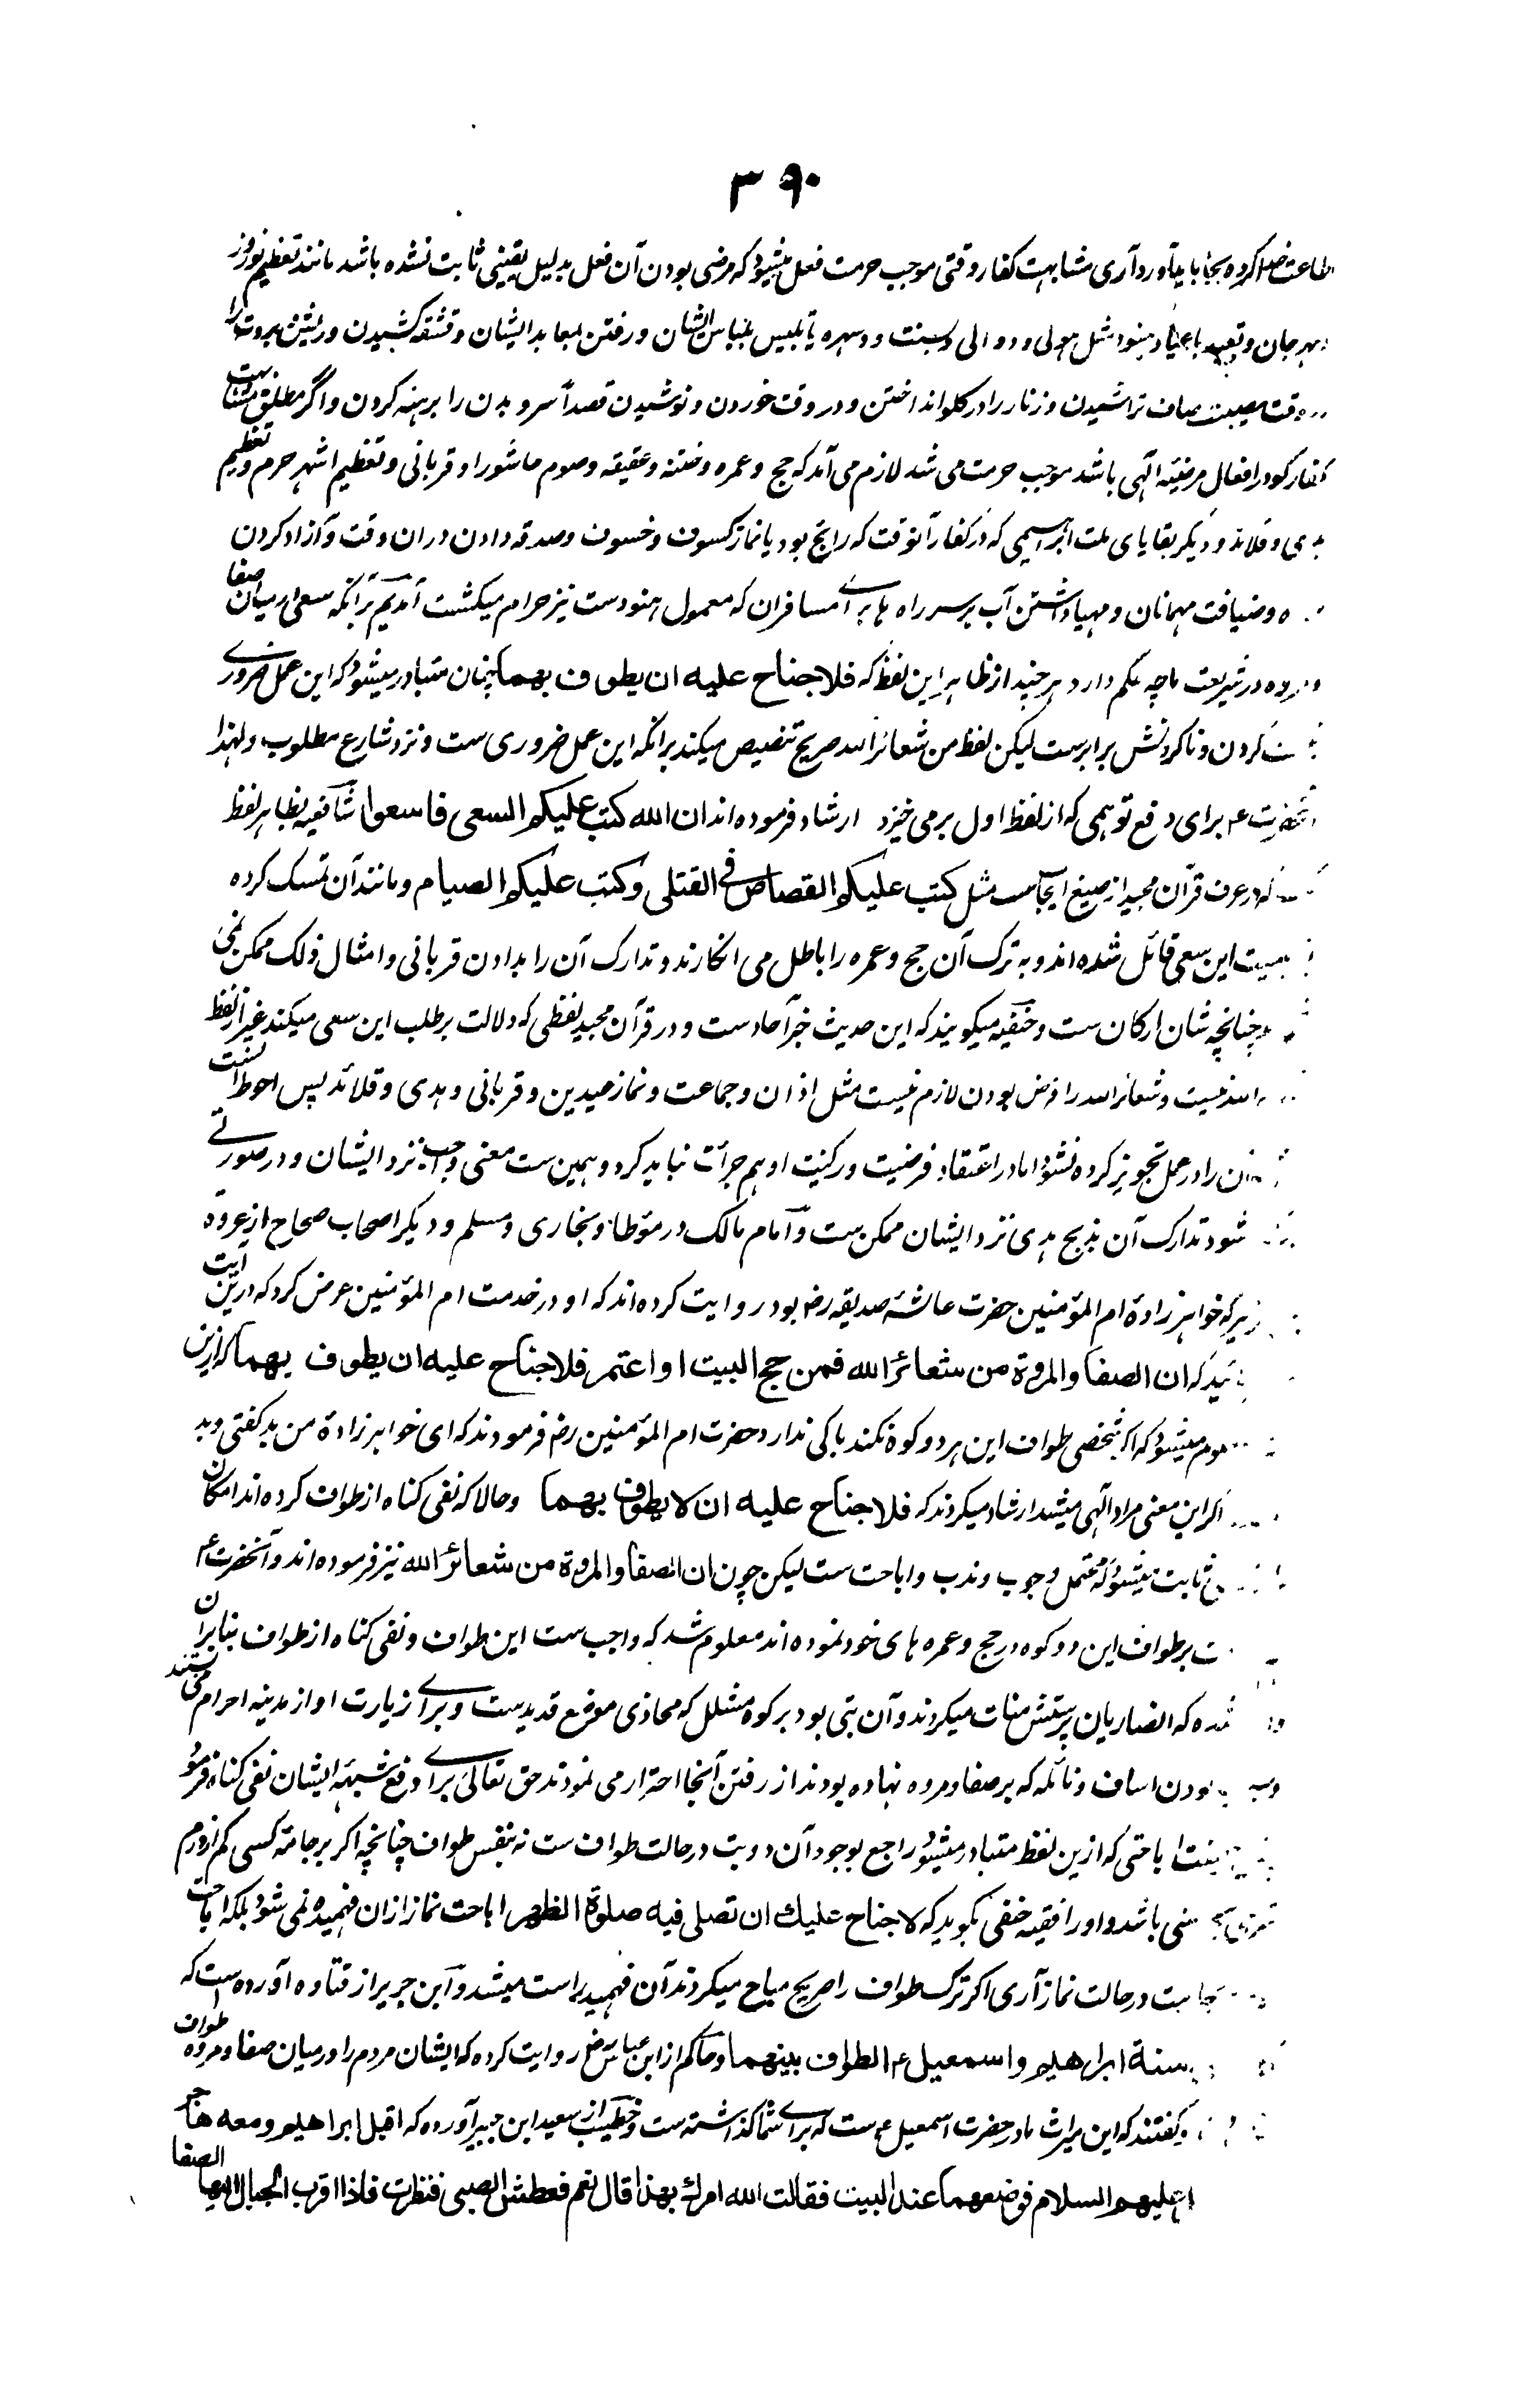 ۳۹۰
طاعت خدا کرده بجا باید آورد آری مشابهت کفار وقتی موجب حرمت فعل میشود که مرضی بودن آن فعل بدلیل یقینی ثابت نشده باشد مانند تعظیم نوروز
مهرجان و تعید باعیاد هنود مثل هولی و دوالی و بسنت و دسهره یا تلبیس بلباس ایشان و رفتن بمعابد ایشان و قشقه کشیدن و ریش و بروت را
وقت مصیبت صاف تراشیدن و زنار را در گلو انداختن و در وقت خوردن و نوشیدن قصداً سر و بدن را برهنه کردن و اگر مطلق مشابهت
کفار گو در افعال مرضیه الهی باشد موجب حرمت می شد لازم می آمد که حج و عمره و ختنه و عقیقه و صوم عاشورا و قربانی و تعظیم اشهر حرم و تعظیم
هدی و قلائد و دیگر بقایای ملت ابراهیمی که در کفار آنوقت که رائج بود یا نماز کسوف و خسوف و صدقه دادن دران وقت و آزاد کردن
و ضیافت مهمانان و مهیا داشتن آب بر سر راه ها برای مسافران که معمول هنودست نیز حرام میگشت آمدیم بر آنکه سعی در میان صفا
و مروه در شریعت ما چه حکم دارد هر چند از ظاهر این لفظ که فلا جناح علیه ان یطوف بهما چنان متبادر میشود که این عمل ضروری
کردن و ناکردنش برابرست لیکن لفظ من شعائر الله صریح تنصیص میکند بر آنکه این عمل ضروری ست و نزد شارع مطلوب و لهذا
آنحضرت ع برای دفع توهمی که از لفظ اول برمی خیزد ارشاد فرموده اند ان الله کتب علیکم السعی فاسعوا شافعیه بظاهر لفظ
که در عرف قرآن مجید از صیغ ایجاب ست مثل کتب علیکم القصاص فی القتلی و کتب علیکم الصیام و مانند آن تمسک کرده
این سعی قائل شده اند و به ترک آن حج و عمره را باطل می انگارند و تدارک آن را بدادن قربانی و امثال ذلک ممکن نمی
چنانچه شان ارکان ست و حنفیه میگویند که این حدیث خبر آحادست و در قرآن مجید لفظی که دلالت بر طلب این سعی میکند غیر از لفظ
الله نیست و شعائر الله را فرض بودن لازم نیست مثل اذان و جماعت و نماز عیدین و قربانی و هدی و قلائد پس احوط آنست
آن را در عمل تجویز کرده نشود اما در اعتقاد فرضیت و رکنیت او هم جرأت نباید کرد و همین ست معنی واجب نزد ایشان و در صورتی
شود تدارک آن بذبح هدی نزد ایشان ممکن ست و امام مالک در مؤطا و بخاری و مسلم و دیگر اصحاب صحاح از عروة
زبیر که خواهرزادهٔ ام المؤمنین حضرت عائشه صدیقه رض بود روایت کرده اند که او در خدمت ام المؤمنین عرض کرد که درین آیت
که ان الصفا والمروة من شعائر الله فمن حج البیت او اعتمر فلا جناح علیه ان یطوف بهما که ازین
میشود که اگر شخصی طواف این هر دو کوه نکند باکی ندارد حضرت ام المؤمنین رض فرمودند که ای خواهرزادهٔ من بد گفتی و بد
اگر این معنی مراد الهی میشد ارشاد میکردند که فلا جناح علیه ان لا یطوف بهما و حالا که نفی گناه از طواف کرده اند امکان
ثابت میشود که محتمل وجوب و ندب و اباحت ست لیکن چون ان الصفا والمروة من شعائر الله نیز فرموده اند و آنحضرت ع
بر طواف این دو کوه در حج و عمره های خود نموده اند معلوم شد که واجب ست این طواف و نفی گناه از طواف بنابران
شده که انصاریان پرستش منات میکردند و آن بتی بود بر کوه مشلل که محاذی موضع قدیدست و برای زیارت او از مدینه احرام می بستند
بودن اساف و نائله که بر صفا و مروه نهاده بودند از رفتن آنجا احتراز می نمودند حق تعالی برای دفع شبهه ایشان نفی گناه فرمود
اباحتی که ازین لفظ متبادر میشود راجع بوجود آن دو بت در حالت طواف ست نه بنفس طواف چنانچه اگر بر جامهٔ کسی کم از درم
باشد و او را فقیه حنفی بگوید که لا جناح علیک ان تصلی فیه صلوة الظهر اباحت نماز ازان فهمیده نمی شود بلکه اباحت
در حالت نماز آری اگر ترک طواف را صریح مباح میکردند آن فهمید راست میشد و ابن جریر از قتاده آورده است که
سنة ابراهیم و اسمعیل ع الطواف بینهما و حاکم از ابن عباس رض روایت کرده که ایشان مردم را در میان صفا و مروه طواف
گفتند که این میراث مادر حضرت اسمعیل ع ست که برای شما گذاشته ست و خطیب از سعید ابن جبیر آورده که اقبل ابراهیم و معه هاجر
علیهم السلام فوضعهما عند البیت فقالت الله امرک بهذا قال نعم فعطش الصبی فنظرت فاذا اقرب الجبال الیها الصفا